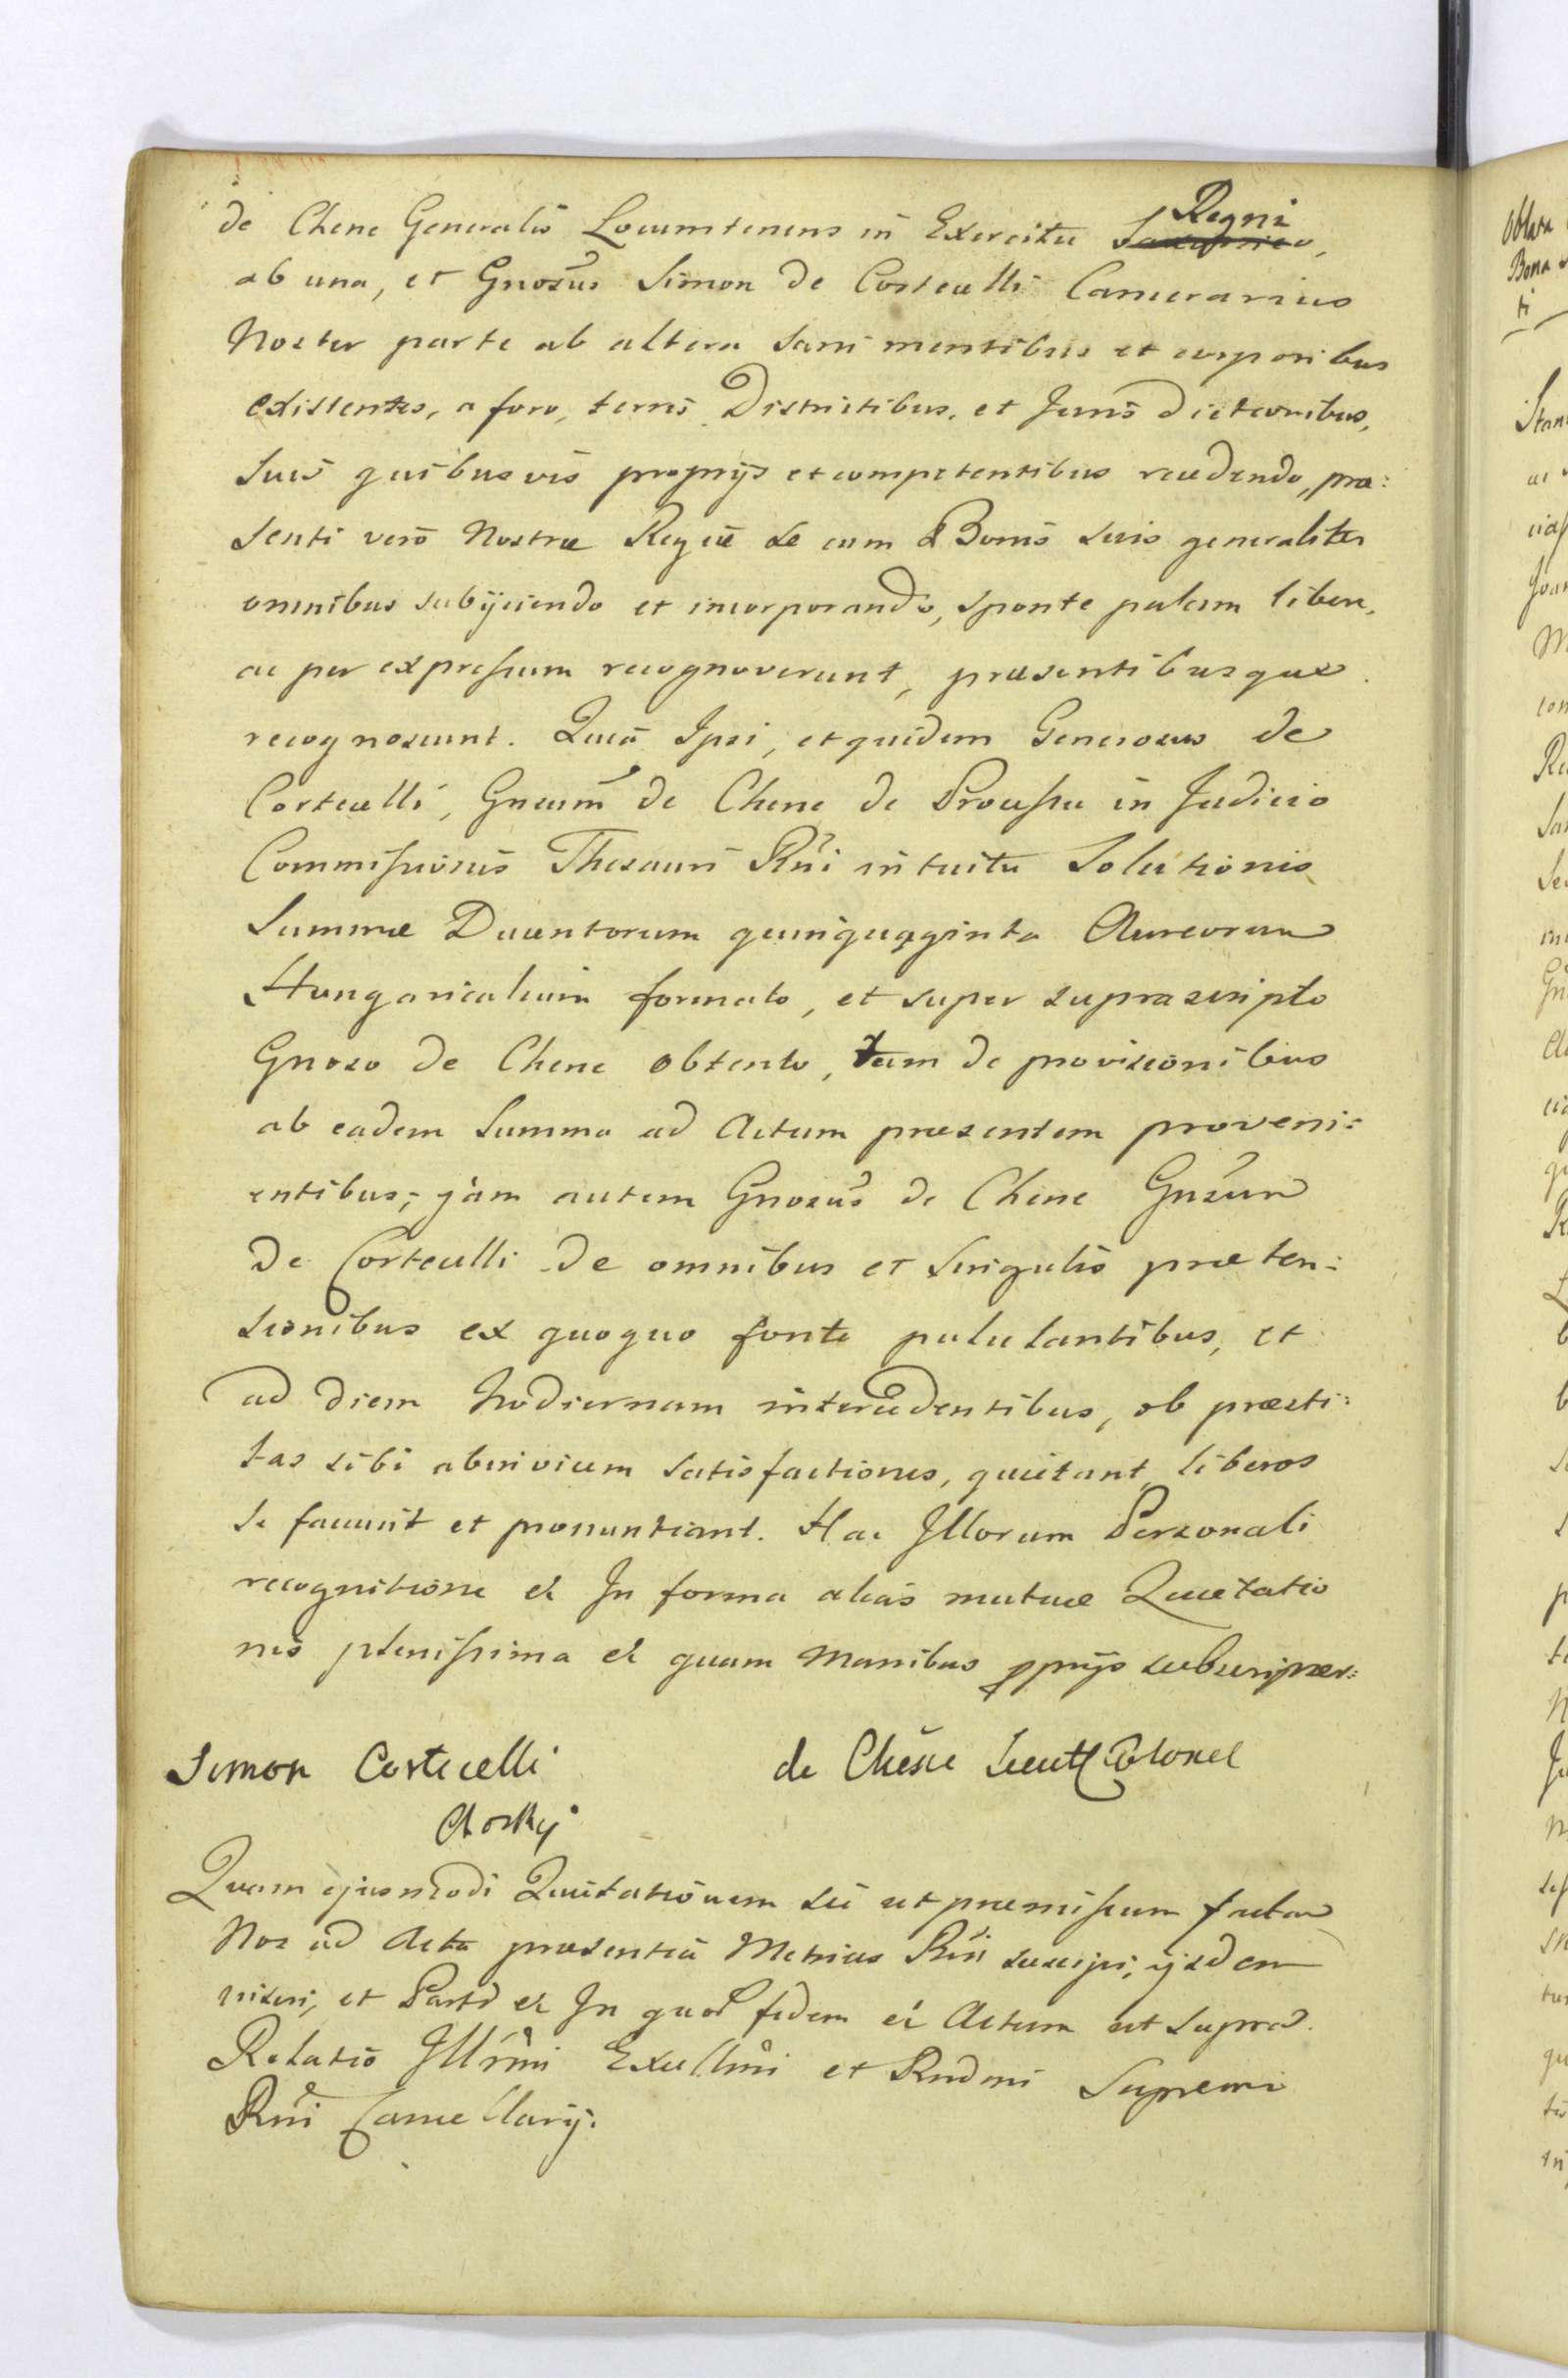 de Chene Generalis Locumtenens in Exercitu Regni,
ab una, et Gnosus Simon de Corticelli Camerarius
Noster parte ab altera sani mentibus et corporibus
existentes, a foro, terris Districtibus, et Jurisdictionibus,
suis quibusvis proprijs et competentibus recedendo, præ:
senti verò Nostræ Regiæ se cum Bonis suis generaliter
omnibus subijciendo et incorporando, sponte palam libere,
ac per expressum recognoverunt, præsentibusque
recognoscunt. Quia Ipsi, et quidem Generosus de
Corticelli, Gneum de Chene de Processu in Judicio
Commissionis Thesauri Rni intuitu Solutionis
Summæ Ducentorum quinquaginta Aureorum
Hungaricalium formato, et super suprascripto
Gnoso de Chene obtento, tum de provisionibus
ab eadem Summa ad Actum præsentem proveni:
entibus; jam autem Gnosus de Chene Gnsum
de Corticelli de omnibus et singulis præten:
sionibus ex quoquo fonte pululantibus, et
ad diem hodiernam intercedentibus, ob præsti:
tas sibi abinvicem satisfactiones, quietant, liberos
se faciunt et pronuntiant. Hac Illorum Personali
recognitione et In forma alias mutuæ Quietatio
nis plenissima et quam Manibus pprijs subscripser:
Simon Corticelli
de Chêne Lieut Colonel
Quam ejusmodi Quietationem sic ut præmissum factam
Nos ad Acta præsentia Metrices Rni suscepi, ijsdem
inseri, et Parti et In quor fidem et Actum ut supra.
Relatio Illrmi Excellmi et Rndmi Supremi
Rni Cancellarij.